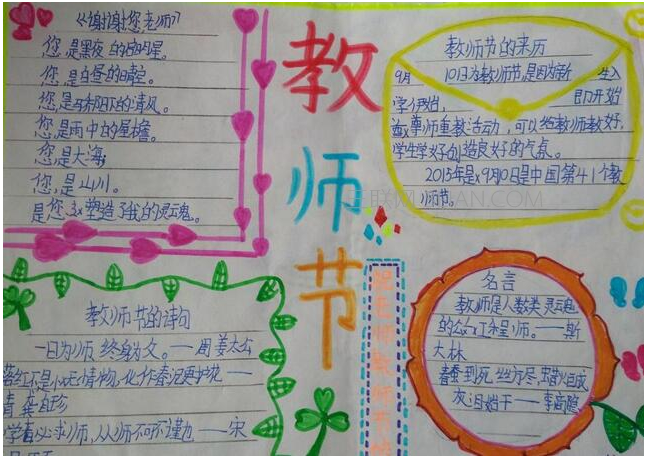 《谢谢您老师》
您是黑夜的启明星。
您是白昼的晴空。
您是骄阳下的清风。
您是雨中的屋檐。
您是大海
您是山川。
是您塑造了我的灵魂。
教师节
教师节的来历
9月10日为教师节,是因为新生入
学伊始,即开始
尊师重教活动,可以给教师教好,
学生学好创造良好的气氛。
2015年是9月10日是中国第41个教
师节。
教师节的诗句
一日为师终身为父。——周姜太公
落红不是无情物,化作春泥更护花——
清龚自珍
学者必求师,从师不可不谨也——宋
祝老师教师节
名言
教师是人类灵魂
的工程师。——斯
大林
春蚕到死丝方尽,蜡炬成
灰泪始干——李商隐